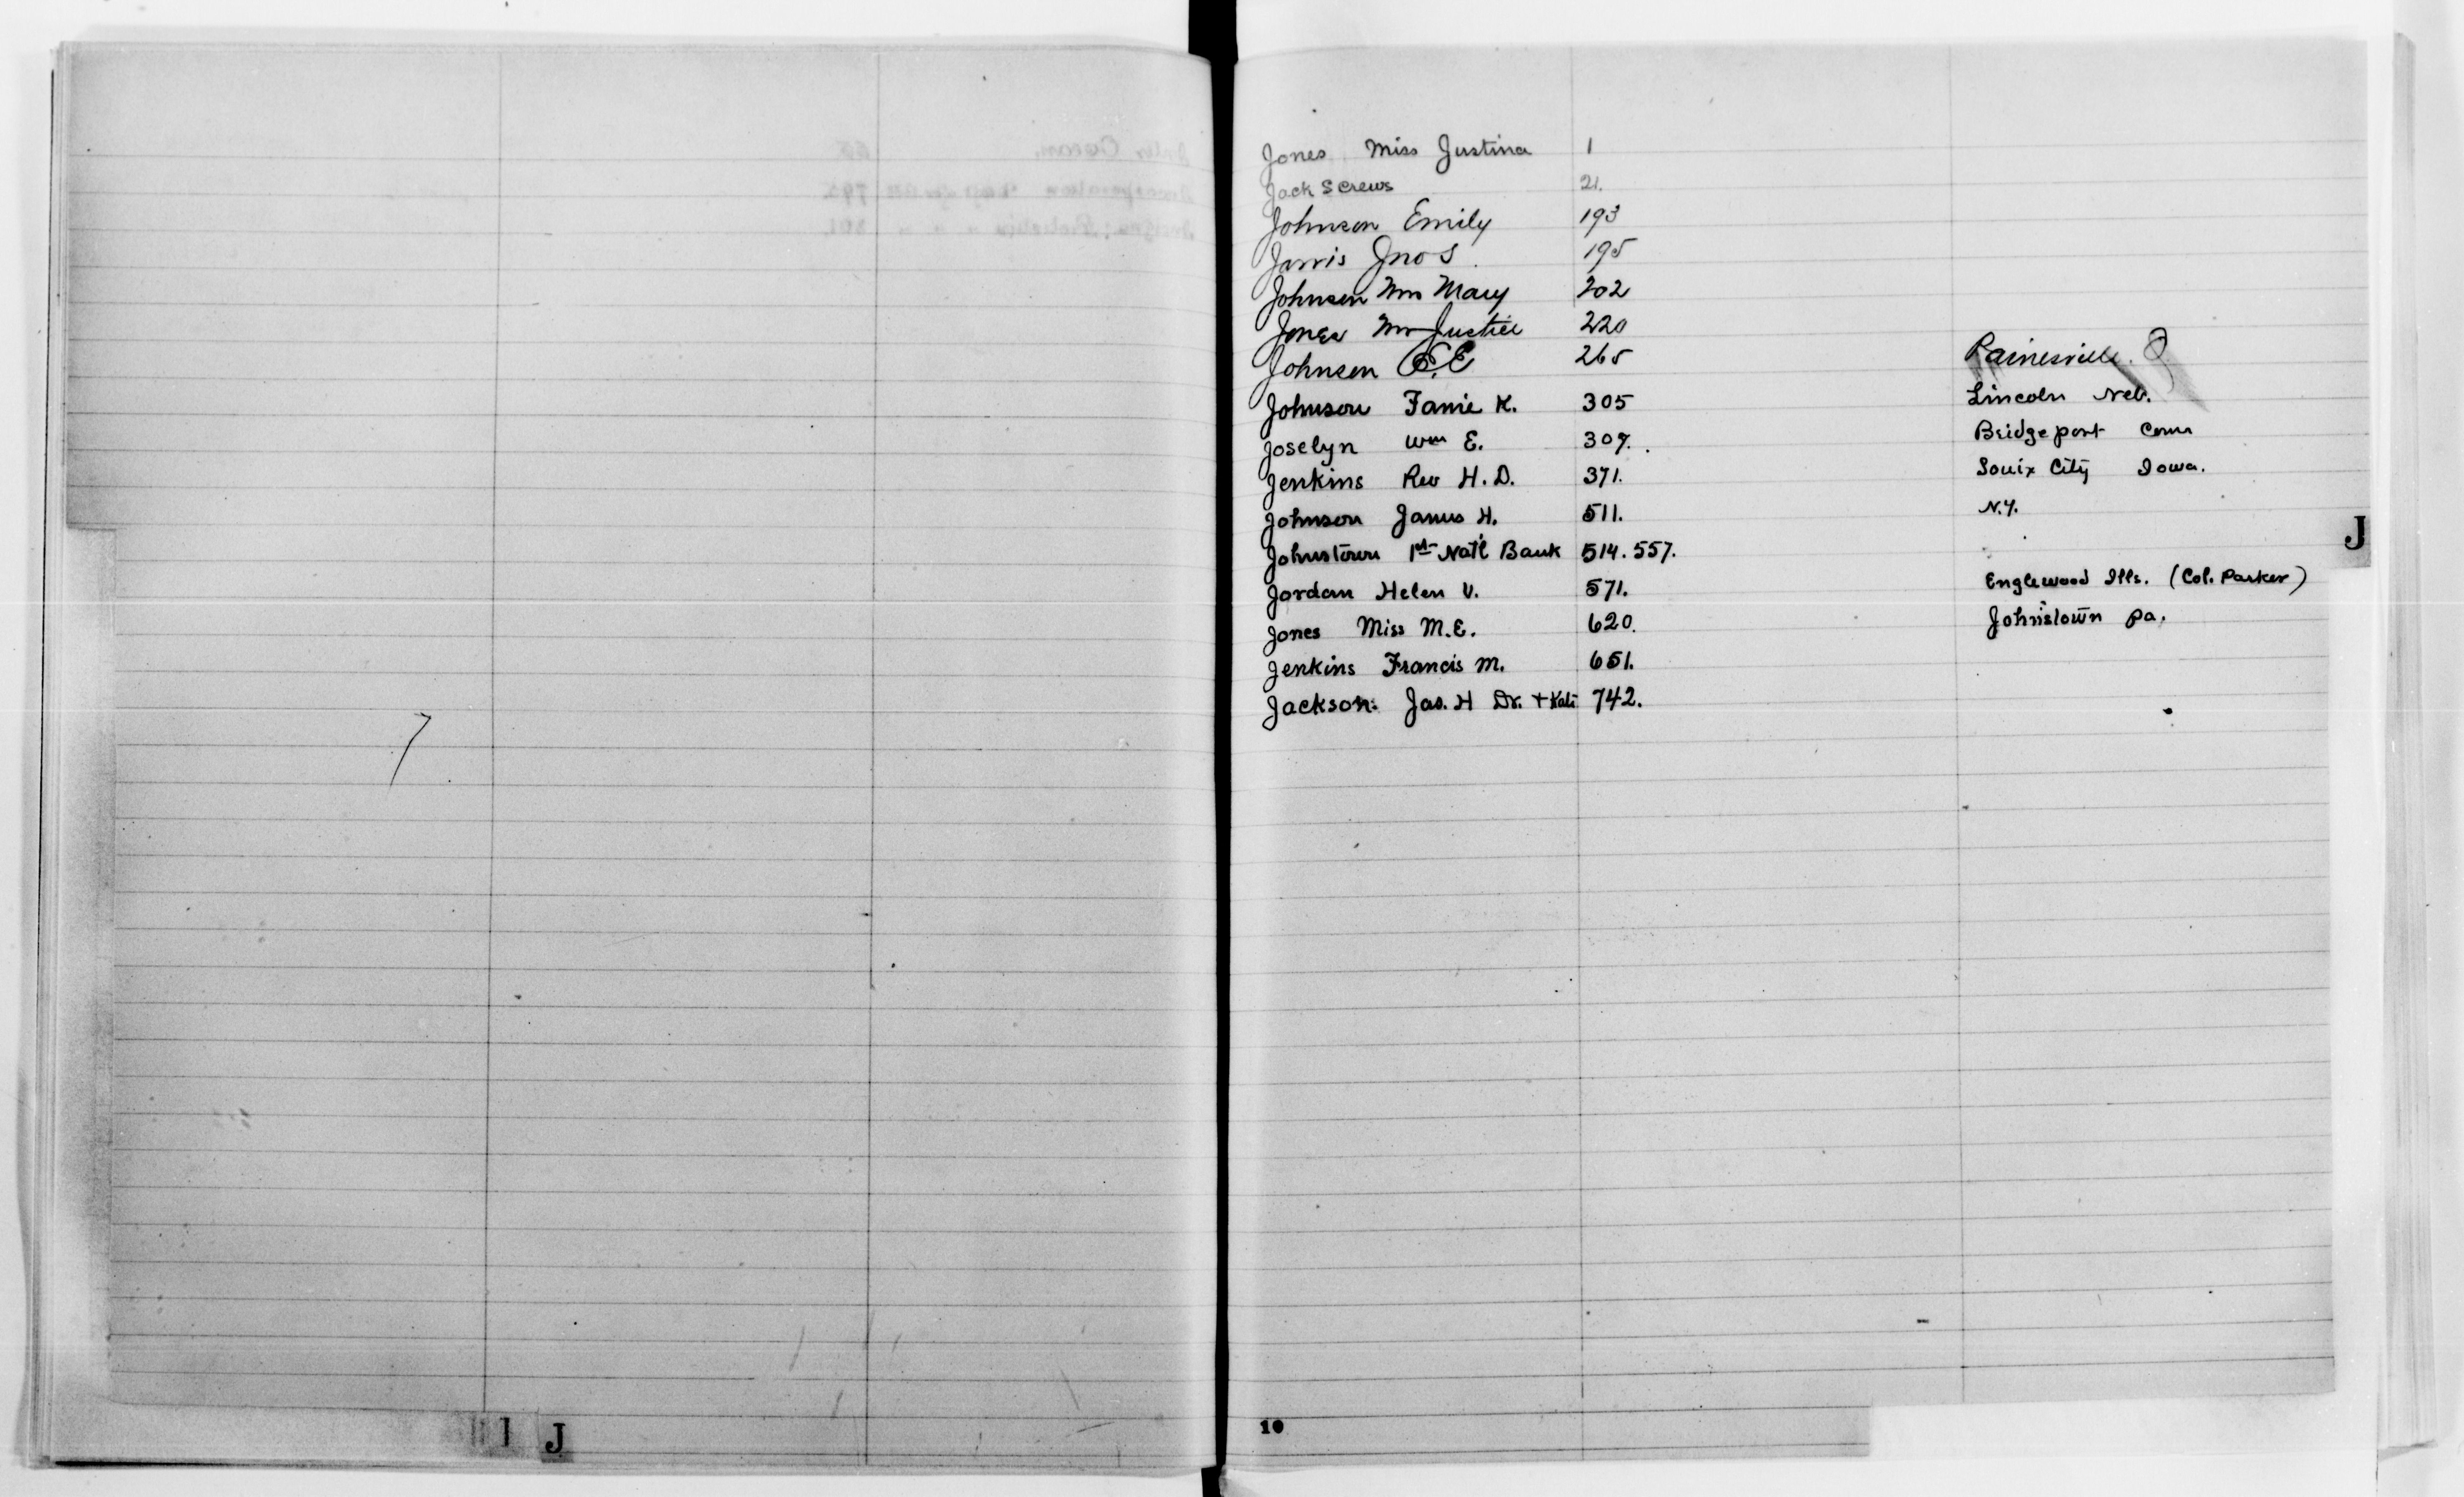 Jones Miss Justina 1
Jack Screws 21.
Johnson Emily 193
Jarvis Jno S. 195
Johnson Mrs Mary 202
Jones Mr Justice 220
Johnson E.E 265 Painesville. O.
Johnson Fanie K. 305 Lincoln Neb.
Joselyn Wm E. 307. Bridgeport Conn
Jenkins Rev H.D. 371. Souix City Iowa.
Johnson James H. 511. N.Y.
Johnstown 1st Nat'l Bank 514. 557.
Jordan Helen V. 571. Englewood Ills. (Col. Parker)
Jones Miss M.E. 620. Johnstown Pa.
Jenkins Francis M. 651.
Jackson: Jas. H Dr. + Kate 742.
J
10
I J